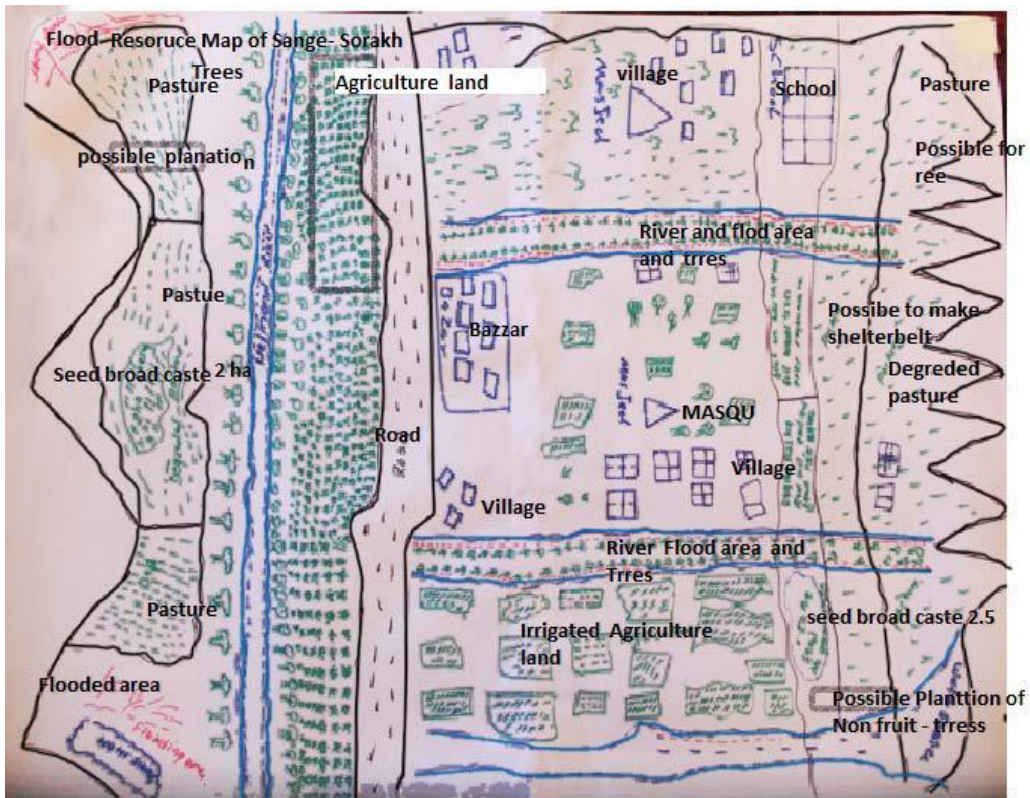 Flood Resoruce Map of Sange- Sorakh
Trees
Pasture
Agriculture land
village
School
Pasture
School
Masjeed
possible planation
Possible for
ree
River and flod area
and trres
Pastue
Bazzar
Bazar
Possibe to make
shelterbelt
Seed broad caste 2 ha
Degreded
pasture
Masjeed
MASQU
Degraded
Road
Road
Village
Village
River Flood area and
Trres
Pasture
Irrigated Agriculture
land
seed broad caste 2.5
Flooded area
Possible Planttion of
Non fruit - trress